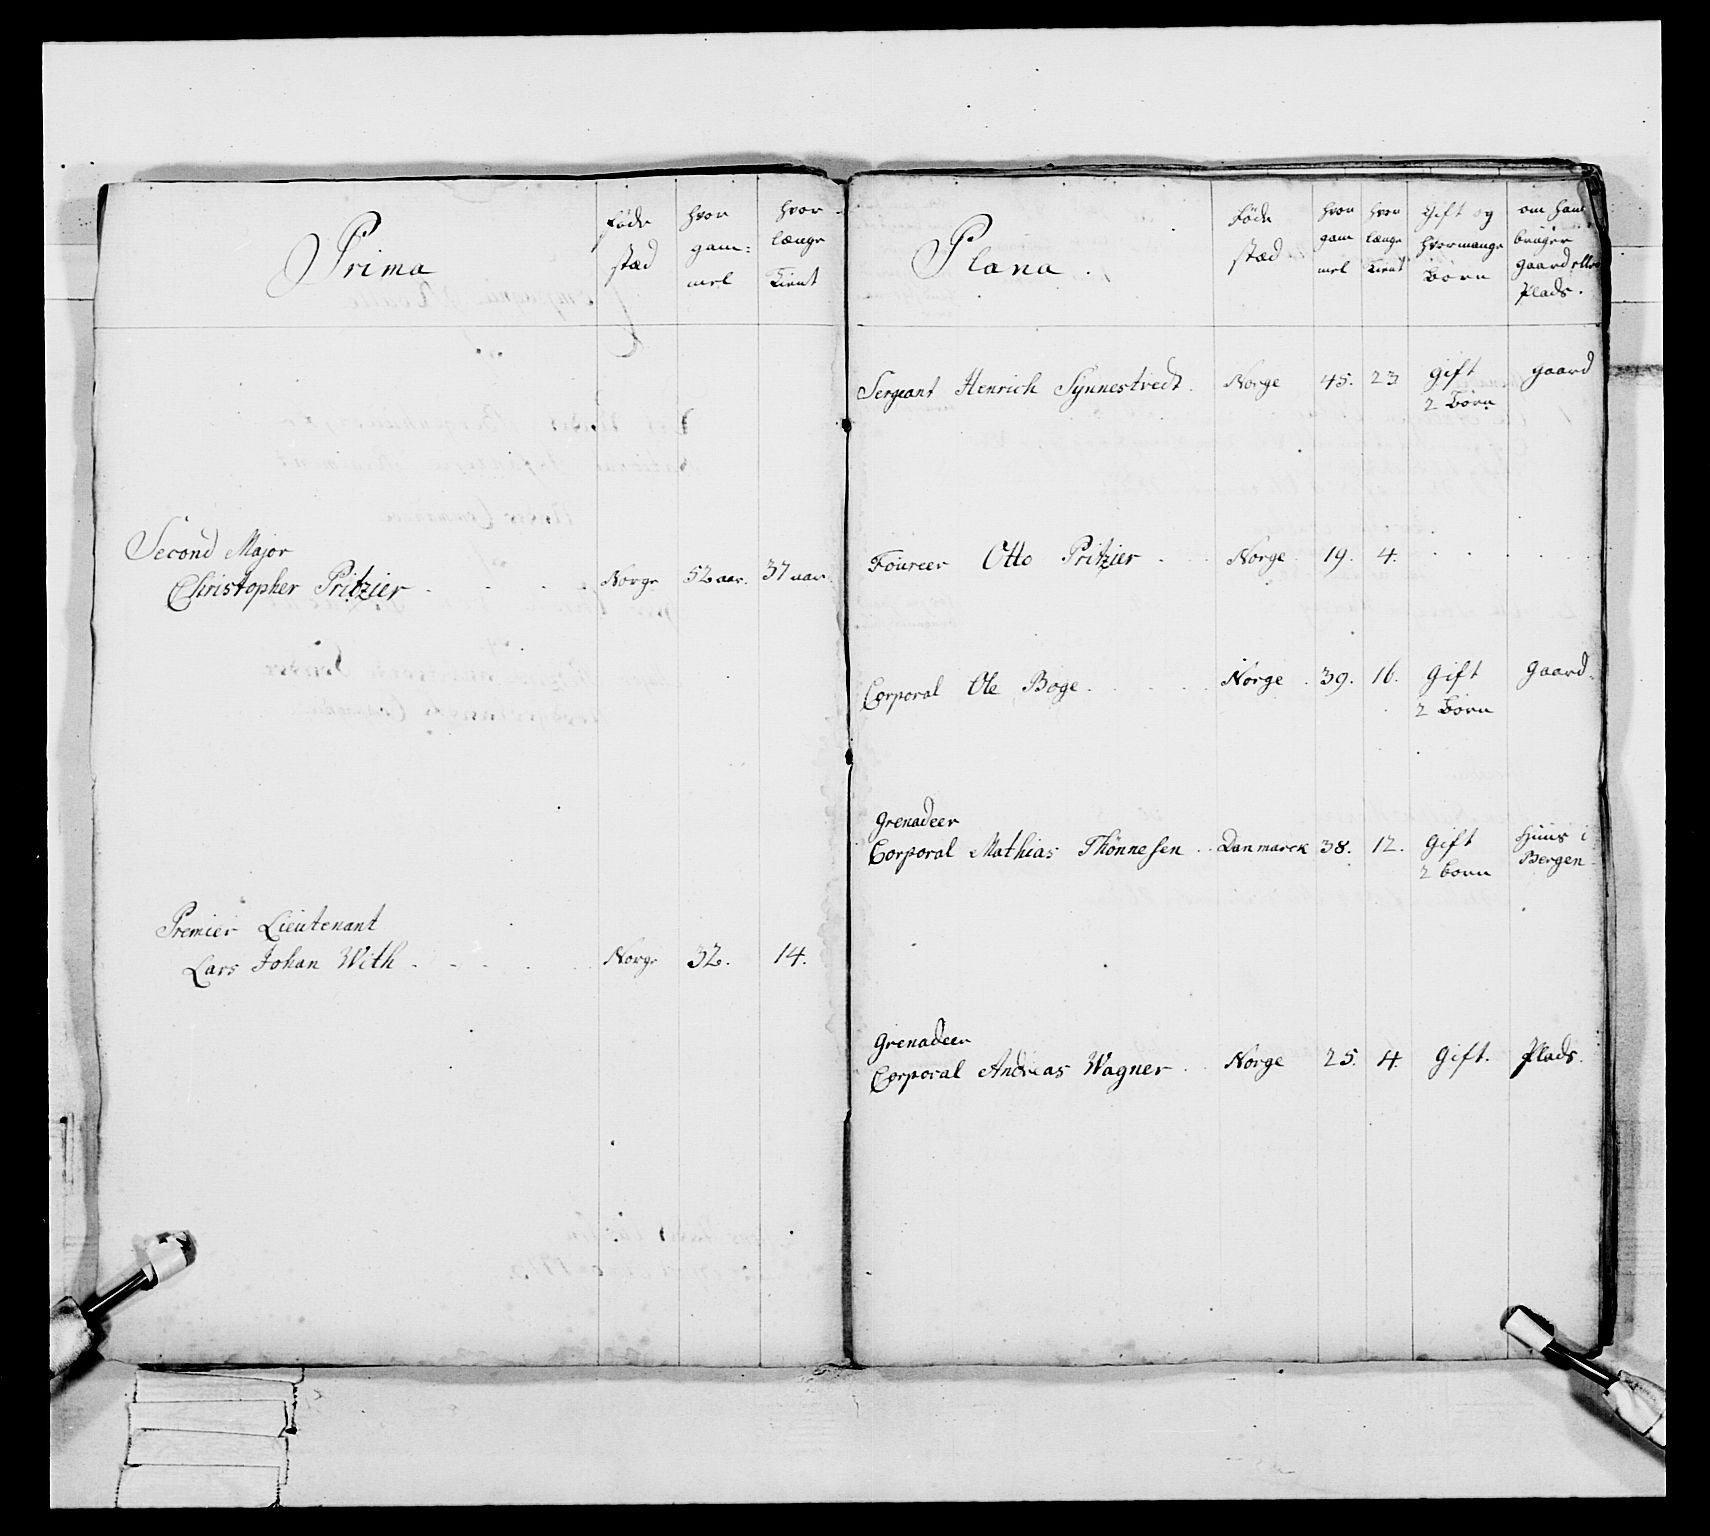 Prima
føde
stæd
hvor
gam=
mel
hvor
længe
tient
Second Major
Christopher Pritzier . . . . Norge 52 aar. 37 aar.
Premier Lieutenant
Lars Johan With . . . . . Norge 32. 14.
Plana .
føde
stæd
hvor
gam
mel
hvor
længe
tient
Gift og
hvormange
børn
om hand
bruger
gaard eller
Plads.
Sergeant Henrich Synnestvedt . Norge 45. 23. gift gaard
2 børn
Foureer Otto Pritzier . . Norge 19. 4. . . . .
Corporal Ole Boge . . . . . Norge . 39. 16. gift gaard.
2 børn
Grenadeer
Corporal Mathias Thønnesen . . Danmarck 38. 12. gift Huus i
2 børn Bergen
Grenadeer
Corporal Andreas Wagner . . Norge 25. 4. gift. Plads.